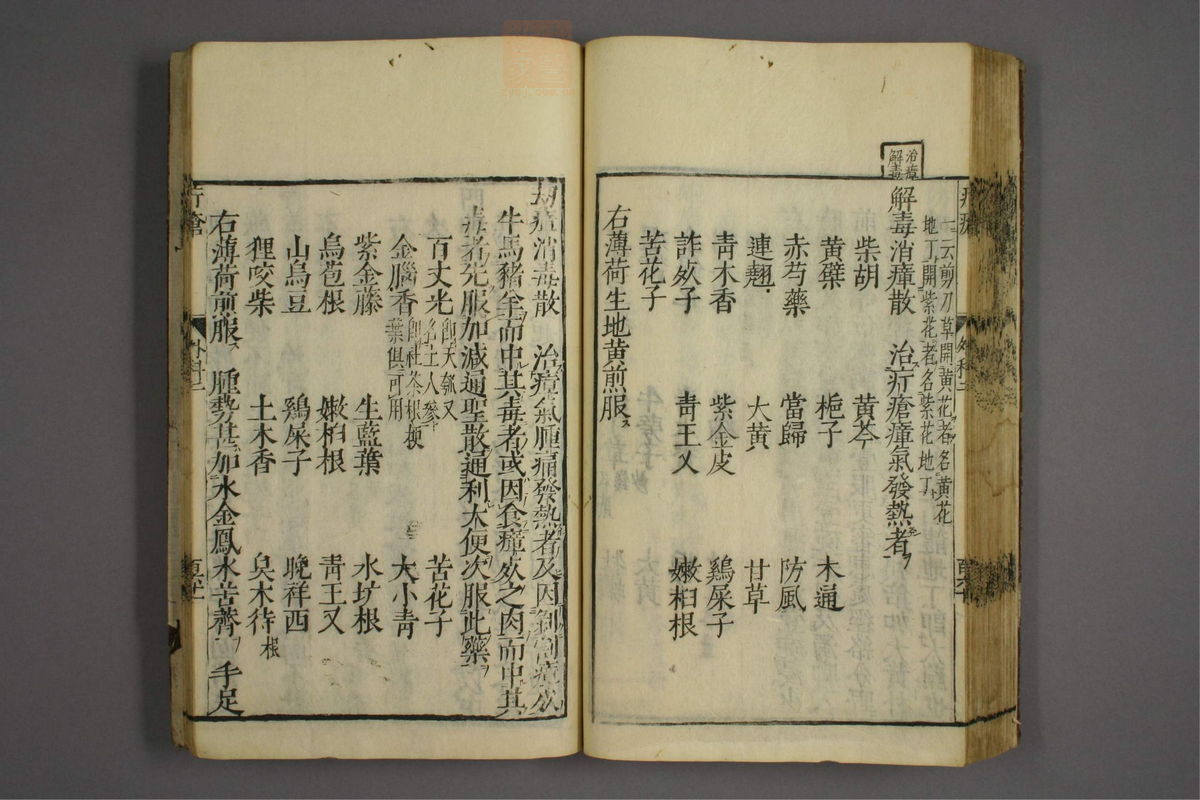 治瘴
解毒
一云剪刀草開黄花者名黄花
地丁開紫花者名紫花地丁
解毒消瘴散 治疔瘡瘴氣發熱者
柴胡 黄芩
黄檗 梔子 木通
赤芍藥 當歸 防風
連翹 大黄 甘草
靑木香 紫金皮 鷄屎子
詐死子 靑王乂 嫩桕根
苦花子
右薄荷生地黄煎服
消毒散 治瘴氣腫痛發熱者及因剝割瘴死
牛馬豬羊而中其毒者或因食瘴死之肉而中其
毒者先服加減通聖散通利大便次服此藥
百丈光 即天瓠又名土人參 苦花子
金腦香 即社茶根梗葉俱可用 大小靑
紫金藤 生藍葉 水坑根
烏苞根 嫩桕根 靑王又
山烏豆 鷄屎子 晚祥西
狸咬柴 土木香 臭木待根
右薄荷煎服 腫勢甚加水金鳳水苦薺 手足